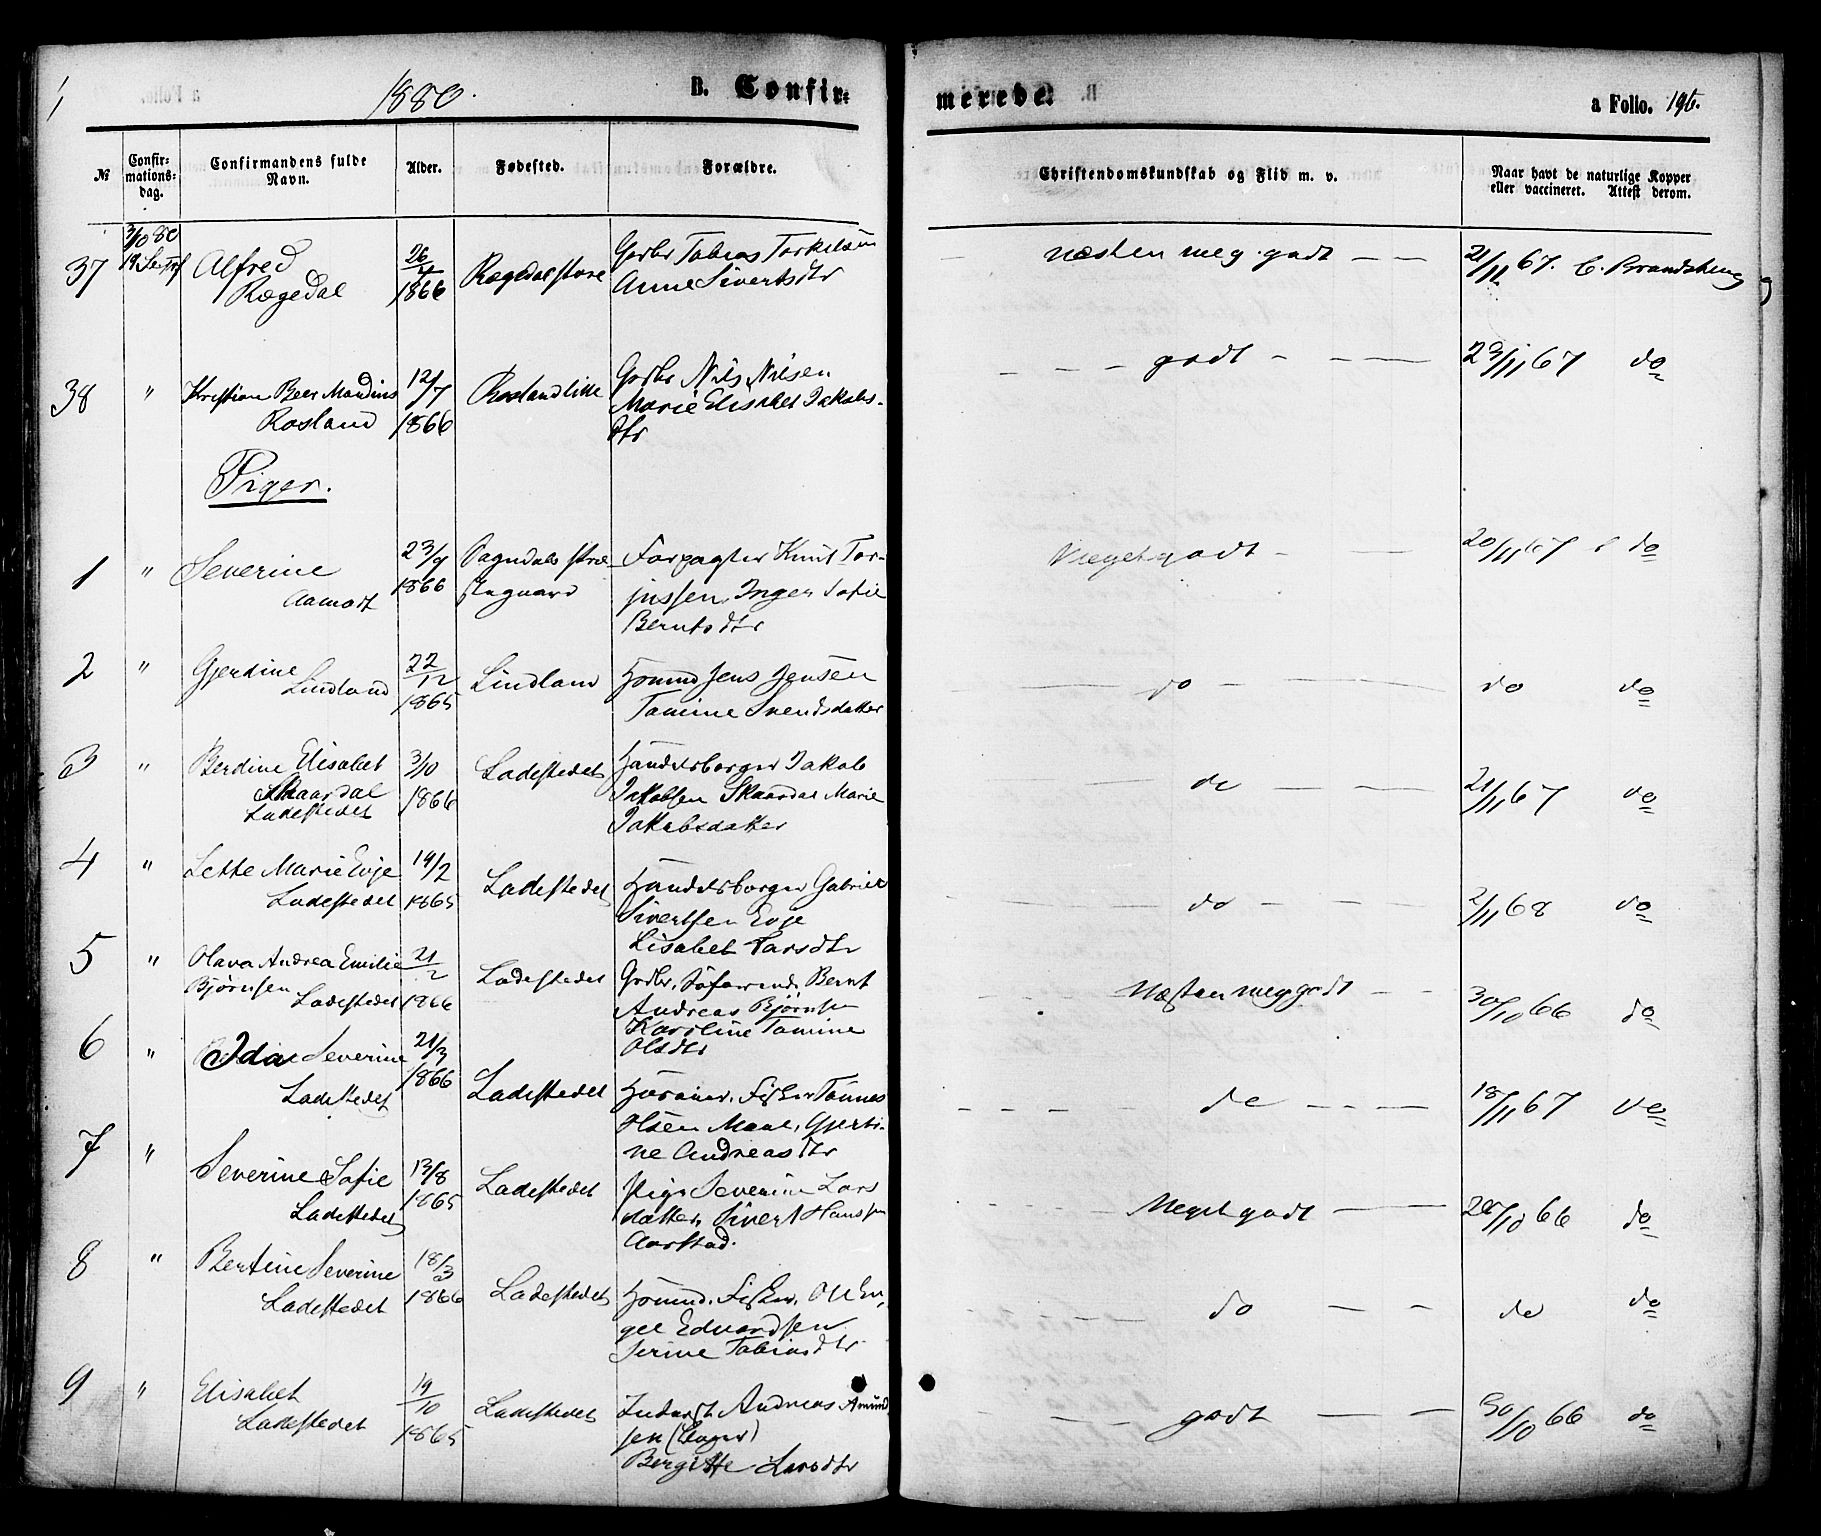 1880.
B. Confir-
merede.
a Folio. 196.
№
Confir-
mations-
dag.
Confirmandens fulde
Navn.
Alder.
Fødested.
Forældre.
Christendomskundskab og Flid m. v.
Naar havt de naturlige Kopper
eller vaccineret. Attest derom.
37
3/10 80
Alfred
Rægedal
26/4
1866
Rægedal store
Gbr Tobias Torkelsen
Anne Sivertsdtr
næsten meg. godt
21/11 67.
38
"
Kristian Beer Maudius
Rosland
12/7
1866
Rosland lille
Nils Nilsen
Marie Elisabet Jakobs-
dtr
godt
23/11 67
do
Piger.
1
"
Severine
Aamodt
23/9
1866
Forpagter Knut Tor-
jussen, Inger Sofie
Berntsdtr
Meget godt
20/11 67
do
2
"
Gjertine
Lindland
22/12
1865
Lindland
Jens Jensen
Tomine Svendsdatter
do
do
do
3
"
Berdine Elisabet
Skaardal
Ladestedet
3/10
1866
Ladestedet
Handelsborger Jakob
Jakobsen Skaardal Marie
Jakobsdatter
do
21/11 67
do
4
"
Lette Marie Evje
Ladestedet
19/2
1865
Ladestedet
Handelsborger Gabriel
Sivertsen Evje
Lisabet Larsdtr
do
2/11 68
do
5
"
Olava Andrea Emilie
Bjørnsen
Ladestedet
21/2
1866
Ladestedet
Gbr, Søfarende Bernt
Andreas Bjørnsen
Karoline Tomine
Olsdtr
Næsten meg godt
30/10 66
do
6
"
Ida Severine
Ladestedet
21/3
1866
Ladestedet
Fisker Tønnes
Olsen Gjerti-
ne Andreasdtr
do
18/11 67
do
7
"
Severine Sofie
Ladestedet
13/8
1865
Ladestedet
Pige Severine Lars
datter, Sivert Hanssen
Aarstad.
Meget godt
do
8
"
Bertine Severine
Ladestedet
18/3
1866
Ladestedet
Fisker, Ole En-
gel Edvardsen
Serine Tobiasdtr
do
do
do
9
"
Elisabet
Ladestedet
19/10
1865
Ladestedet
Inderst Andreas Amund
sen
Birgitte Larsdtr
godt
30/10 66
do